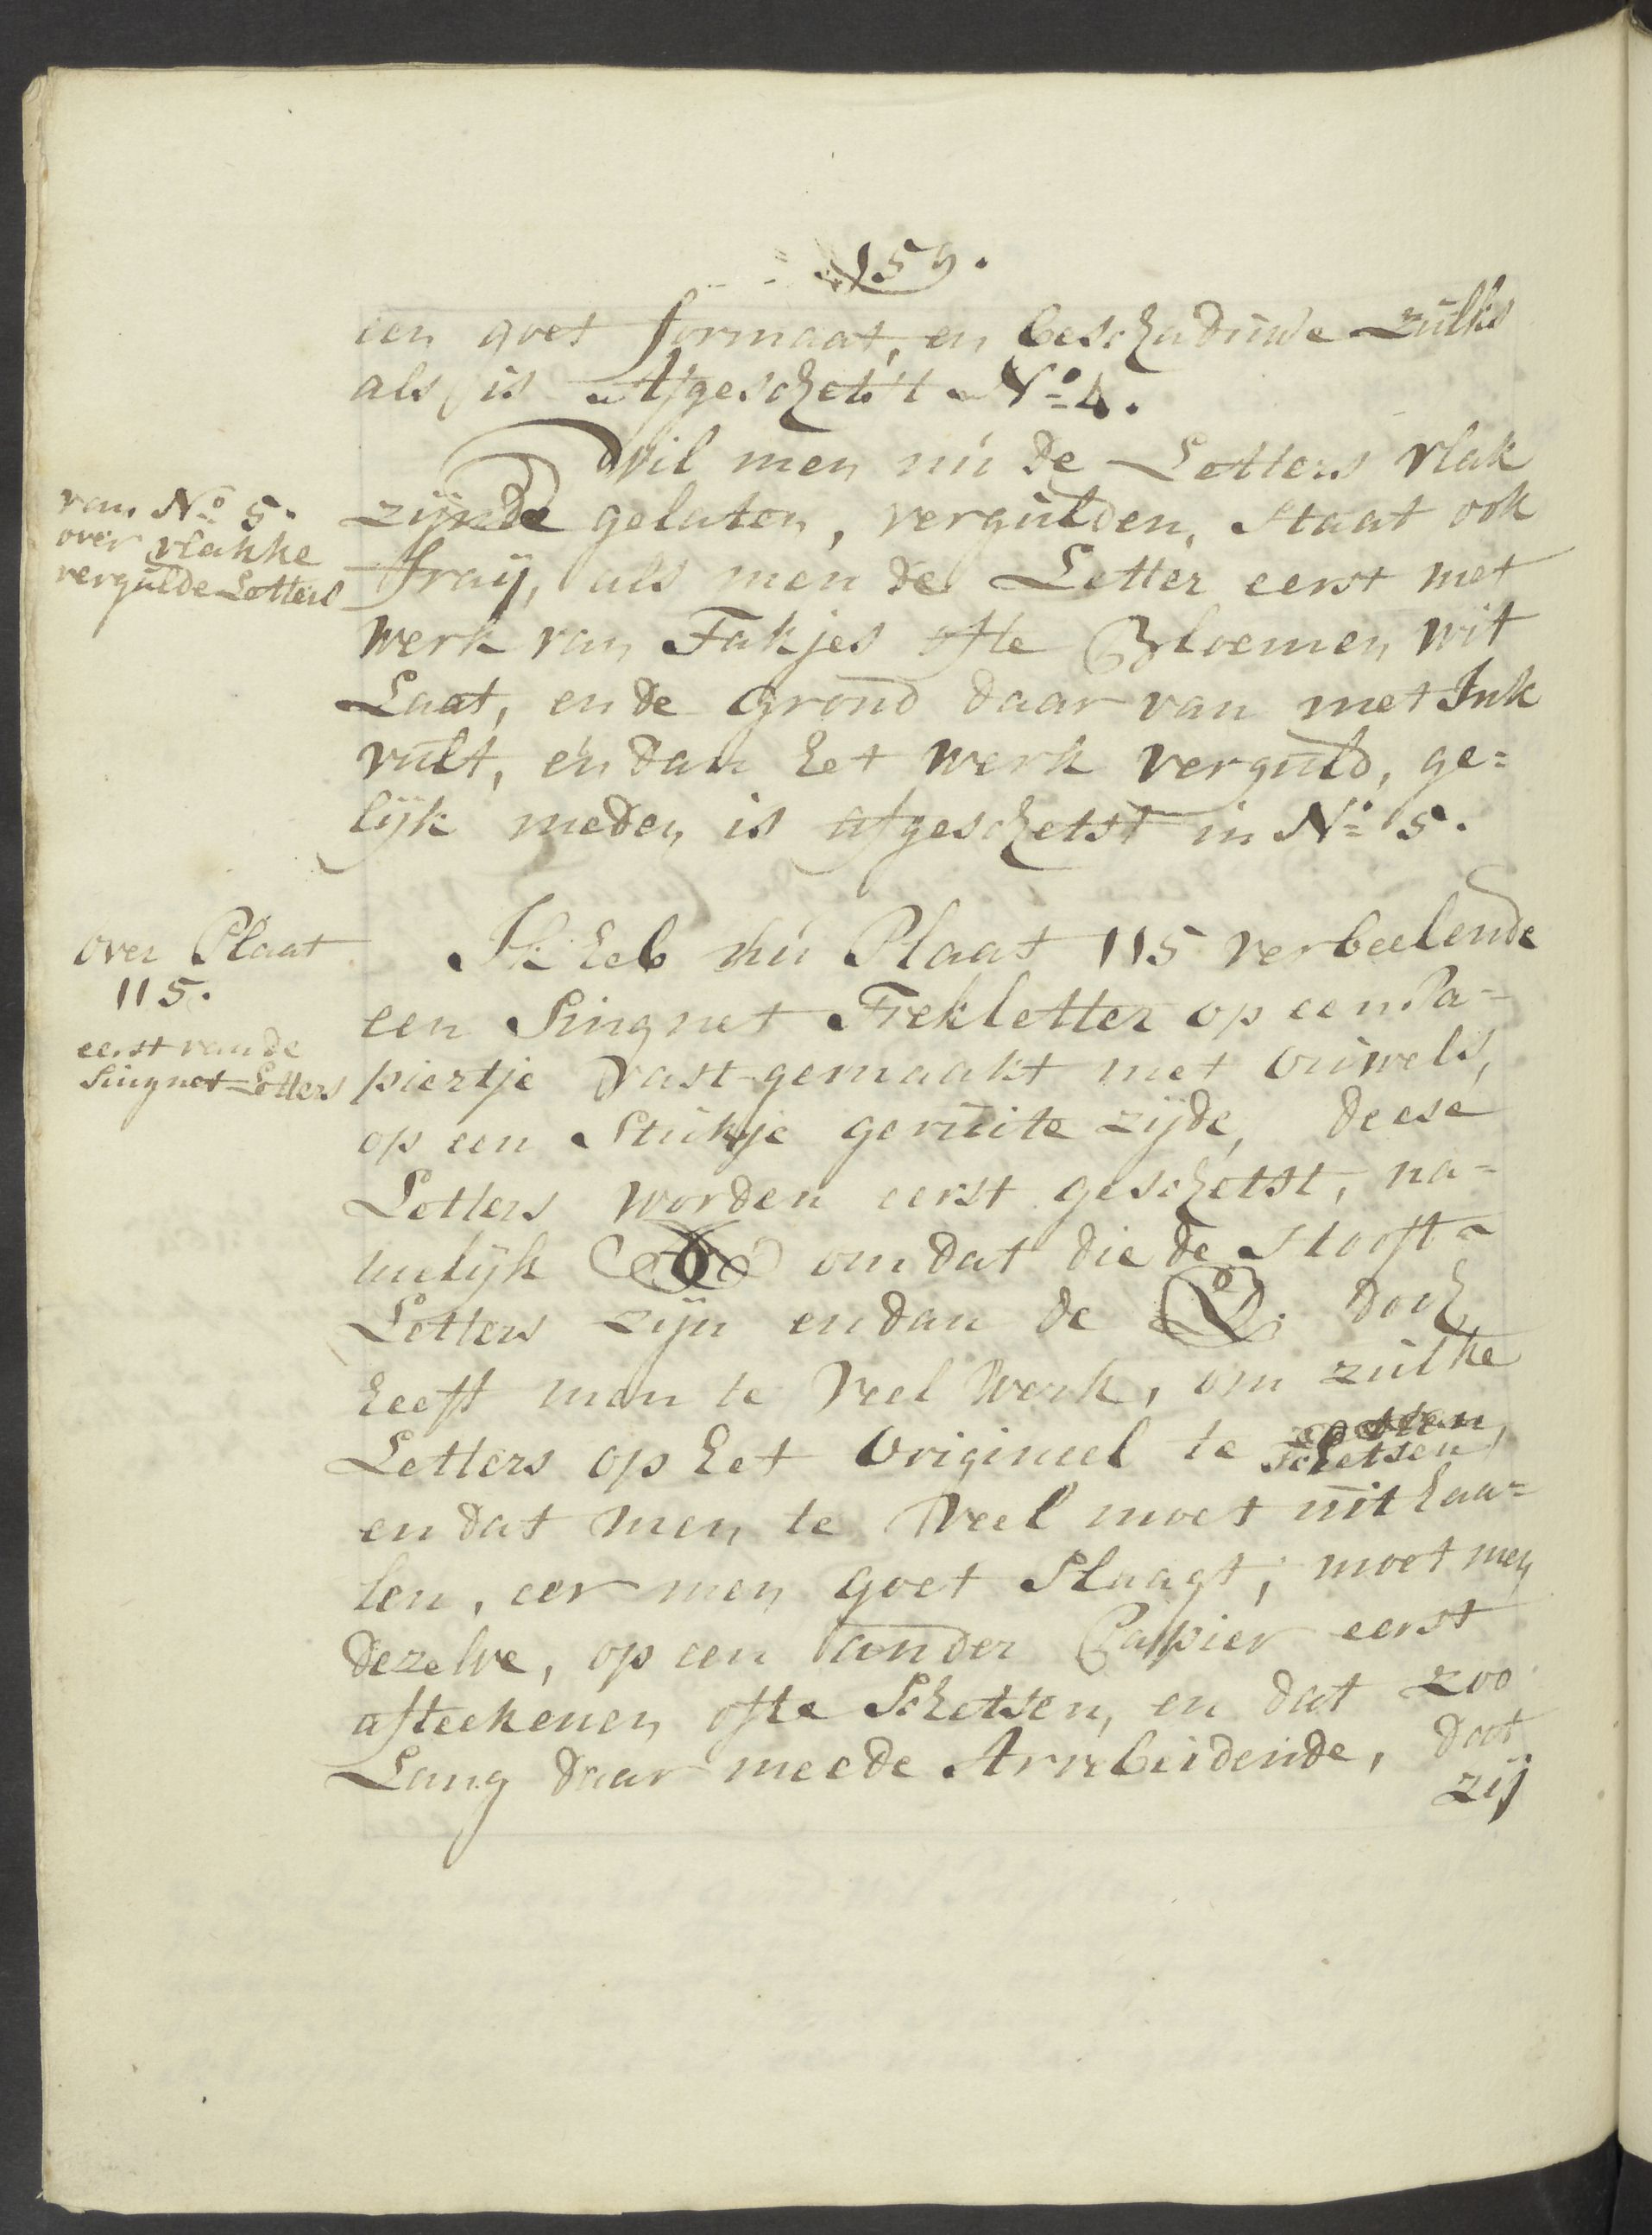 159.
een goet formaat, en beschaduwe zulks
als is Afgeschetst No. 4.
Wil men nu de Letters vlak
van No. 5.
over vlakke
vergulde Letters
zijnde gelaten, vergulden, staat ook
fraij, als men de Letter eerst met
werk van Takjes ofte Bloemen wit
Laat, en de grond daar van met Ink
vult, en dan het werk verguld, ge=
lijk meden is afgeschetst in No. 5.
over Plaat
115.
eerst van de
Singnet=Letters
Ik heb nu Plaat 115 verbeelende
een Singnet Trekletter op een Pa=
piertje vast gemaakt met Ouwels,
op een Stukje geruite zijde, deese
Letters worden eerst geschetst, na=
melijk omdat die de Hooft=
Letters zijn en dan de D. doch
heeft men te veel werk, om zulke
Letters op het Origineel te Schetsen,
en dat men te veel moet uithaa=
len, eer men goet Slaagt, moet men
dezelve, op een ander Papier eerst
afteekenen ofte Schetsen, en dat zoo
Lang daar meede Arrebeidende, dat
zij